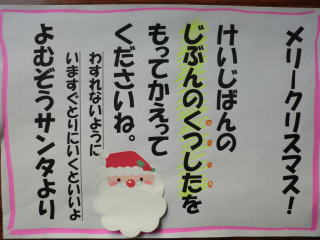 メリークリスマス！
けいじばんの
じぶんのくつしたを
もってかえって
くださいね。
わすれないように
いますぐとりにいくといいよ
よむぞうサンタより